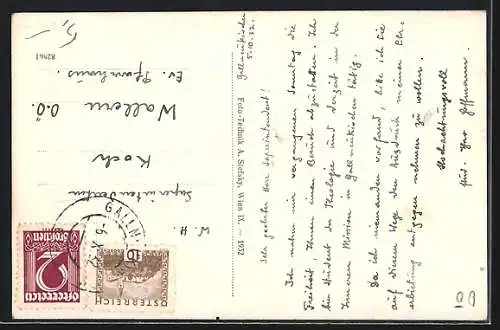 Gallneukirchen
5.10.32.
Sehr geehrter Herr Superintendent!
Ich nahm mir vergangenen Sonntag die
Freiheit, Ihnen einen Besuch abzustatten. Ich
bin Student der Theologie und derzeit in der
Inneren Mission in Gallneukirchen tätig.
Da ich niemanden vorfand, bitte ich Sie
auf diesem Wege den Ausdruck meiner Ehr-
erbietung entgegen nehmen zu wollen.
Hochachtungsvoll
Hoffmann.
Foto-Technik A. Stefsky, Wien IX. — 1932
W. H.
Superintendenten
Koch
Wallern
O.Ö.
Ev. Pfarrhaus.
82861
5,-
ÖSTERREICH
10
Österreich
2
Groschen
GALLN
-6.X.32